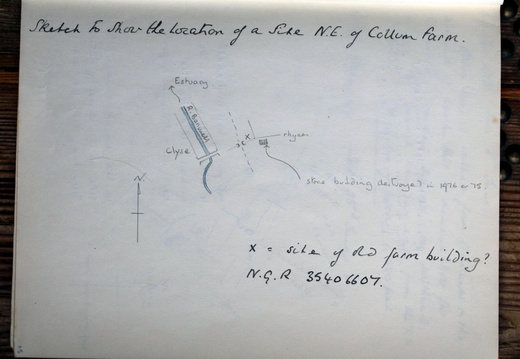 Sketch to Show the Location of a Site N.E. of Collum Farm.
Estuary
R. Banwell
Clyse
x
x
rhyne
N.
stone building destroyed in 1976 or 75.
x = site of old farm building?
N.G.R 35406607.